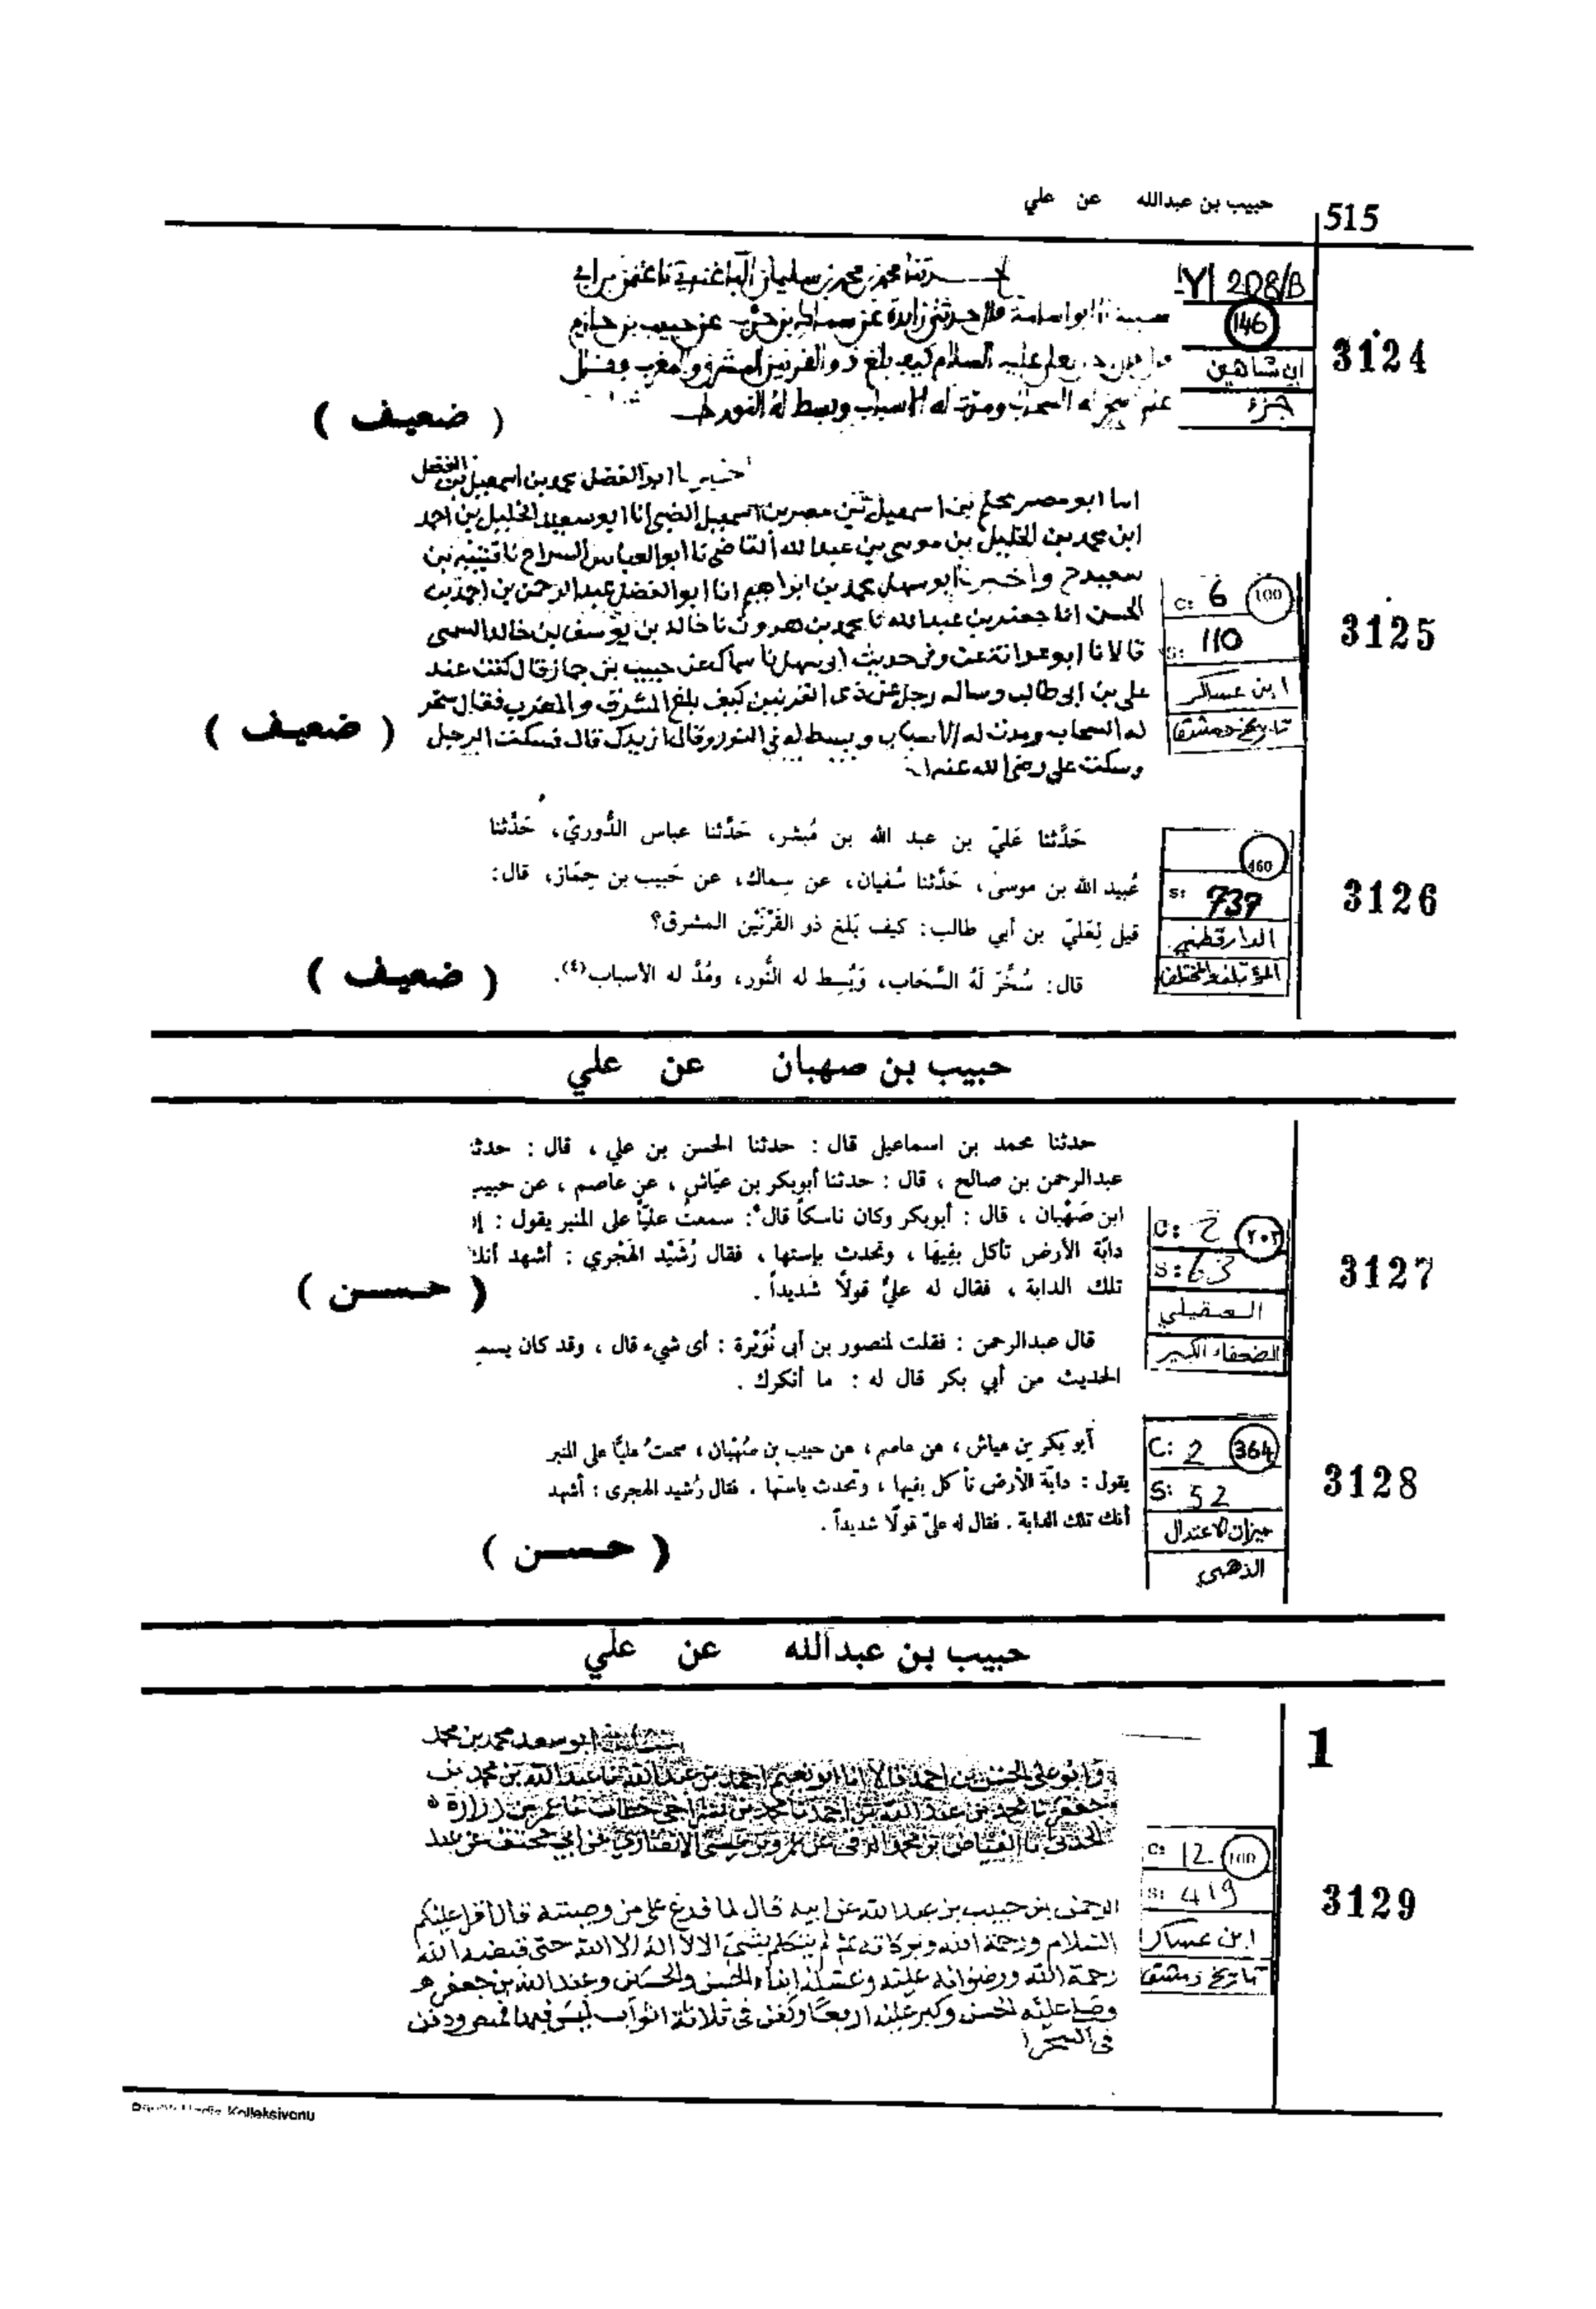 حبيب بن عبدالله عن علي
515
Y 208/B
146
ابن شاهين
جزء
3124
حدثنا محمد بن محمد بن سليمان الباغندي نا عثمن بن ابي
ابو اسامة قال حدثني زايدة عن سماك بن حرب عن حبيب بن حمازم
عليه السلام كيف بلغ ذو القرنين المشرق والمغرب فقال
السحاب ومدت له الاسباب وبسط له النور
( ضعيف )
C: 6 100
S: 110
ابن عساكر
تاريخ دمشق
3125
اخبرنا ابو الفضل محمد بن اسمعيل بن الفضل
انا ابو مضر محلم بن اسمعيل بن مضر بن اسمعيل الضبي انا ابو سعيد الخليل بن احمد
ابن محمد بن الخليل بن موسى بن عبد الله القاضي نا ابو العباس السراج نا قتيبة بن
سعيد ح واخبرنا ابو سهل محمد بن ابراهيم انا ابو الفضل عبد الرحمن بن احمد بن
الحسن انا جعفر بن عبد الله نا محمد بن هرون نا خالد بن يوسف بن خالد السمتي
قالا نا ابو عوانة عن وفي حديث ابي سهل نا سماك عن حبيب بن جماز قال كنت عند
علي بن ابي طالب وساله رجل عن ذي القرنين كيف بلغ المشرق والمغرب فقال سخر
له السحاب ومدت له الاسباب وبسط له في النور وقال ازيدك قال فسكت الرجل
وسكت علي رضي الله عنه
( ضعيف )
460
S: 737
الدارقطني
المؤتلف والمختلف
3126
حَدَّثنا عَليّ بن عبد الله بن مُبشر، حَدَّثنا عباس الدُّوريّ، حَدَّثنا
عُبيد الله بن موسىٰ، حَدَّثنا سُفيان، عن سِماك، عن حَبيب بن حِمّاز، قال:
قيل لِعَليّ بن أبي طالب: كيف بَلغ ذو القَرْنَيْن المشرق؟
قال: سُخِّرَ لَهُ السَّحَاب، وَبُسِط له النُّور، ومُدَّ له الأسباب(٤).
( ضعيف )
حبيب بن صهبان عن علي
C: 2 ٢٠٢
S: 63
العقيلي
الضعفاء الكبير
3127
حدثنا محمد بن اسماعيل قال : حدثنا الحسن بن علي ، قال : حدثـ
عبدالرحمن بن صالح ، قال : حدثنا أبوبكر بن عيّاش ، عن عاصم ، عن حبيب
ابن صَهْبان ، قال : أبوبكر وكان ناسكاً قال : سمعتُ عليّاً على المنبر يقول : إ
دابّة الأرض تأكل بفِيهَا ، وتحدث بإستها ، فقال رُشَيْد الهَجْري : أشهد أنك
تلك الدابة ، فقال له عليٌّ قولًا شديداً .
( حسن )
قال عبدالرحمن : فقلت لمنصور بن أبى نُوَيْرة : أى شيء قال ، وقد كان يسمـ
الحديث من أبي بكر قال له : ما أنكرك .
C: 2 364
S: 52
ميزان الاعتدال
الذهبي
3128
أبو بكر بن عياش ، عن عاصم ، عن حبيب بن صُهْبان ، سمعتُ عليًّا على المنبر
يقول : دابّة الأرض تأكل بفيها ، وتحدث باستها . فقال رُشيد الهجرى : أشهد
أنك تلك الدابة . فقال له علىّ قولًا شديداً .
( حسن )
حبيب بن عبدالله عن علي
1
C: 12 100
S: 419
ابن عساكر
تاريخ دمشق
3129
ابو سعد محمد بن محمد
وابو علي الحسن بن احمد قالا انا ابو نعيم احمد بن عبد الله نا عبد الله بن محمد بن
جعفر نا محمد بن عبد الله بن احمد نا محمد بن بشر اخي خطاب نا عمر بن زرارة
الحدثي نا الفياض بن محمد الرقي عن عمرو بن عيسى الانصاري عن ابي مخنف عن عبد
الرحمن بن حبيب بن عبد الله عن ابيه قال لما فرغ علي من وصيته قال اقرا عليكم
السلام ورحمة الله وبركاته ثم لم يتكلم بشي الا لا اله الا الله حتى قبضه الله
رحمة الله ورضوانه عليه وغسله ابناه الحسن والحسين وعبد الله بن جعفر
وصلى عليه الحسن وكبر عليه اربعا وكفن في ثلاثة اثواب ليس فيها قميص ودفن
في السحر
Hadis Kolleksiyonu